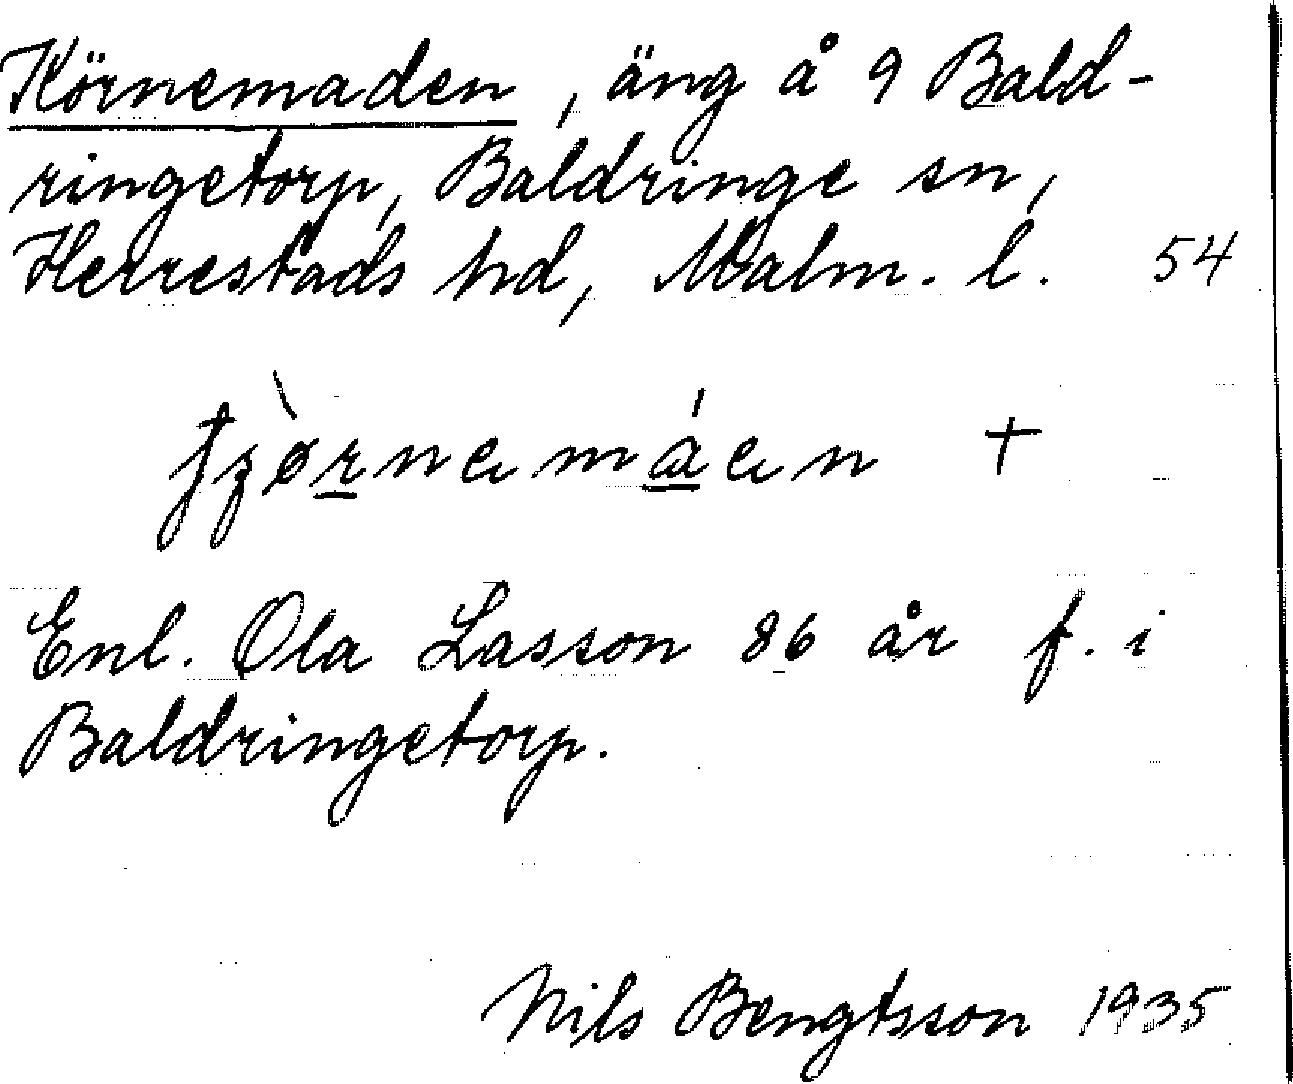 Körnemaden, äng å 9 Bald-
ringetorp, Baldringe sn,
Herrestads hd, Malm. l. 54
tjørnemáen +
Enl. Ola Lasson 86 år f. i
Baldringetorp.
Nils Bengtsson 1935